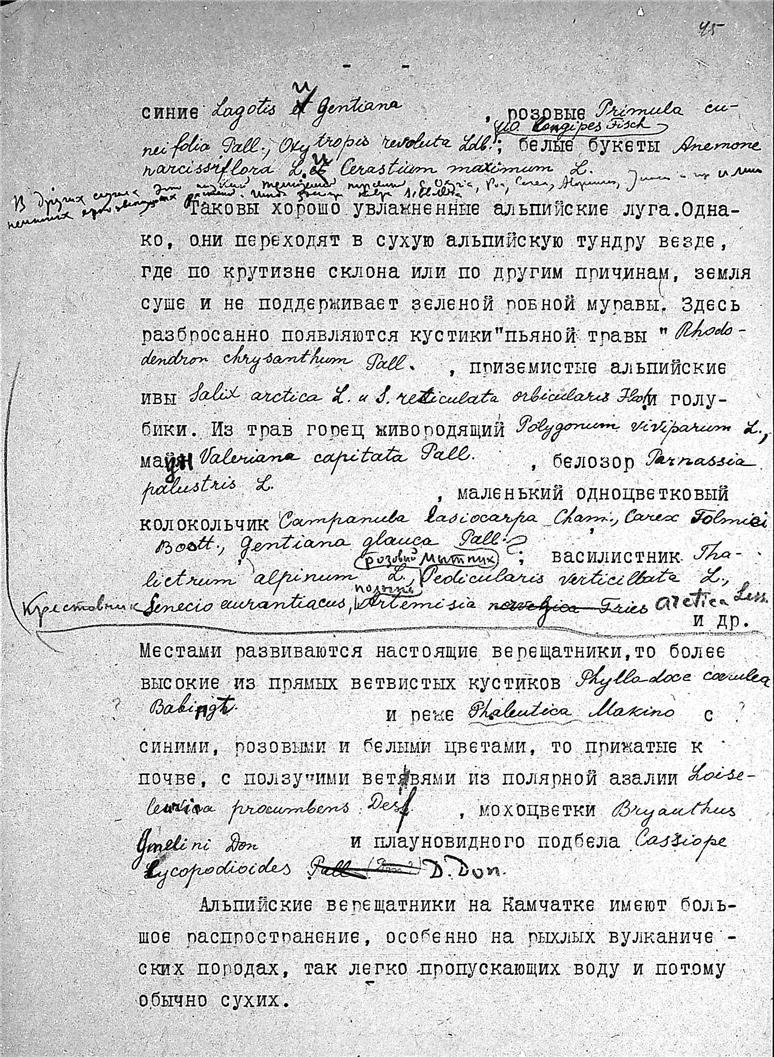 45
- -
синие Lagotis и Gentiana , розовые Primula cu-
Fisch
neifolia Pall., Oxytropis revoluta Ldb.; белые букеты Anemone
narcissiflora L. и Cerastium maximum L.
В других случаях
Таковы хорошо увлажненные альпийские луга.Одна-
ко, они переходят в сухую альпийскую тундру везде,
где по крутизне склона или по другим причинам, земля
суше и не поддерживает зеленой ровной муравы. Здесь
разбросанно появляются кустики"пьяной травы " Rhodo-
dendron chrysanthum Pall. , приземистые альпийские
ивы Salix arctica L. и S. reticulata orbicularis и голу-
бики. Из трав горец живородящий Polygonum viviparum L.,
маун Valeriana capitata Pall. , белозор Parnassia
palustris L. , маленький одноцветковый
колокольчик Campanula lasiocarpa Cham., Carex Tolmiei
Boott., Gentiana glauca Pall.
розовый мытник ; василистник Tha-
lictrum alpinum L., Pedicularis verticillata L.,
полынь
Крестовник Senecio aurantiacus, Artemisia norvegica Fries arctica Less.
и др.
Местами развиваются настоящие верещатники,то более
высокие из прямых ветвистых кустиков Phyllodoce coerulea
? Babingt. и реже Phaleutica Makino с ?
синими, розовыми и белыми цветами, то прижатые к
почве, с ползучими ветвями из полярной азалии Loise-
leuria procumbens Desf , мохоцветки Bryanthus
Gmelini Don и плауновидного подбела Cassiope
lycopodioides Pall. D. Don.
Альпийские верещатники на Камчатке имеют боль-
шое распространение, особенно на рыхлых вулканиче -
ских породах, так легко пропускающих воду и потому
обычно сухих.